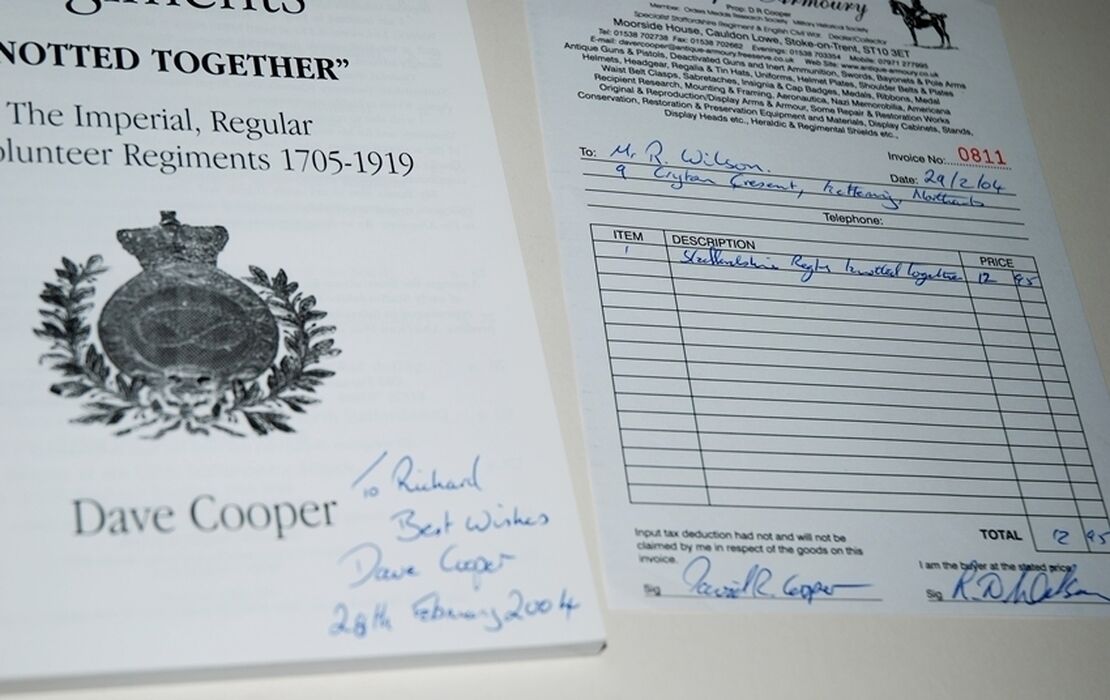 NOTTED TOGETHER"
The Imperial, Regular
olunteer Regiments 1705-1919
Dave Cooper
To Richard
Best Wishes
Dave Cooper
28th February 2004
Armoury
Prop: D R Cooper
Member: Orders Medals Research Society Military Historical Society
Specialist Staffordshire Regiment & English Civil War Dealer/Collector
Moorside House, Cauldon Lowe, Stoke-on-Trent, ST10 3ET
Tel: 01538 702738 Fax: 01538 702662 Evenings: 01538 703354 Mobile: 07971 277995
E-mail: davercooper@antique-armoury.freeserve.co.uk Web Site: www.antique-armoury.co.uk
Antique Guns & Pistols, Deactivated Guns and Inert Ammunition, Swords, Bayonets & Pole Arms
Helmets, Headgear, Regalia & Tin Hats, Uniforms, Helmet Plates, Shoulder Belts & Plates
Waist Belt Clasps, Sabretaches, Insignia & Cap Badges, Medals, Ribbons, Medal
Recipient Research, Mounting & Framing, Aeronautica, Nazi Memorobilia, Americana
Original & Reproduction/Display Arms & Armour, Some Repair & Restoration Works
Conservation, Restoration & Preservation Equipment and Materials, Display Cabinets, Stands,
Display Heads etc., Heraldic & Regimental Shields etc.,
To: Mr R. Wilson. Invoice No: 0811
9 Crescent, Kettering, Northants Date: 29/2/04
Telephone:
ITEM DESCRIPTION PRICE
1 Staffordshire Regts knotted together 12 95
Input tax deduction had not and will not be
claimed by me in respect of the goods on this
invoice.
TOTAL 12 95
I am the buyer at the stated price
Sig David R. Cooper
Sig R. D. Wilson